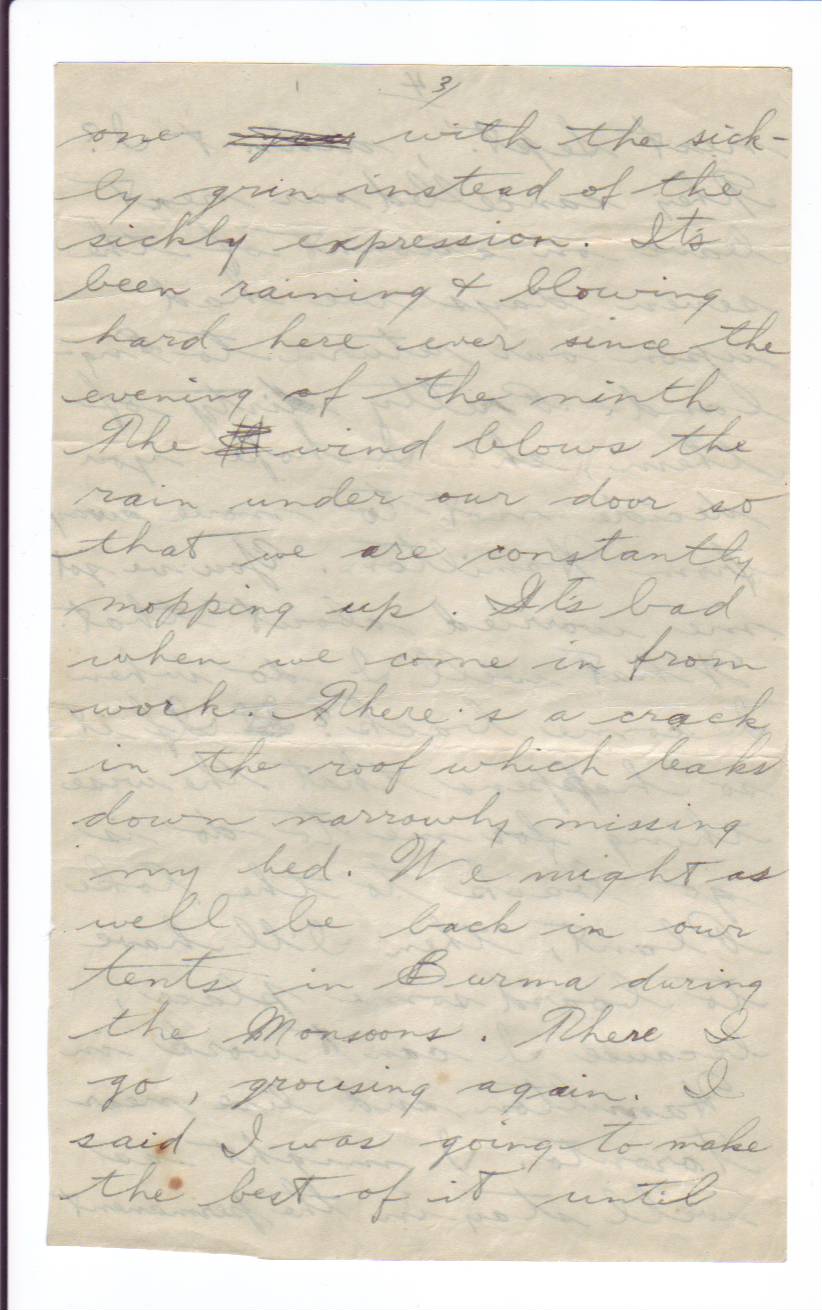 3/
one you with the sick-
ly grin instead of the
sickly expression. It's
been raining & blowing
hard here ever since the
evening of the ninth
The wind blows the
rain under our door so
that we are constantly
mopping up. It's bad
when we come in from
work. There's a crack
in the roof which leaks
down narrowly missing
my bed. We might as
well be back in our
tents in Burma during
the Monsoons. There I
go, grousing again. I
said I was going to make
the best of it until